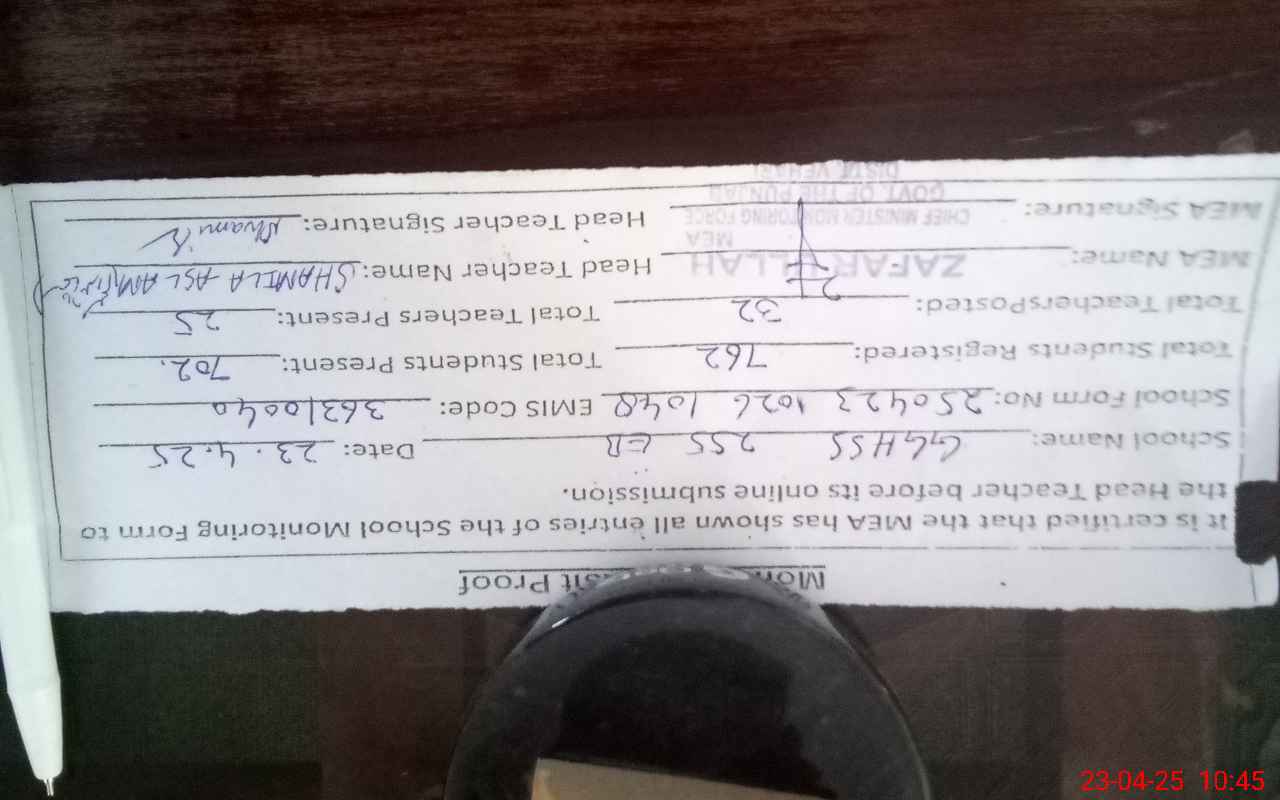 Mon sit Proof
It is certified that the MEA has shown all entries of the School Monitoring Form to
the Head Teacher before its online submission.
School Name: GGHSS 255 EB Date: 23.4.25
School Form No: 250423 1026 1048 EMIS Code: 36310040
Total Students Registered: 762 Total Students Present: 702.
Total TeachersPosted: 32 Total Teachers Present: 25
MEA Name: ZAFAR ULLAH Head Teacher Name: SHAMILA ASLAM
MEA
MEA Signature: Head Teacher Signature:
CHIEF MINISTER MONITORING FORCE
GOVT. OF THE PUNJAB
DISTT. VEHARI
23-04-25 10:45